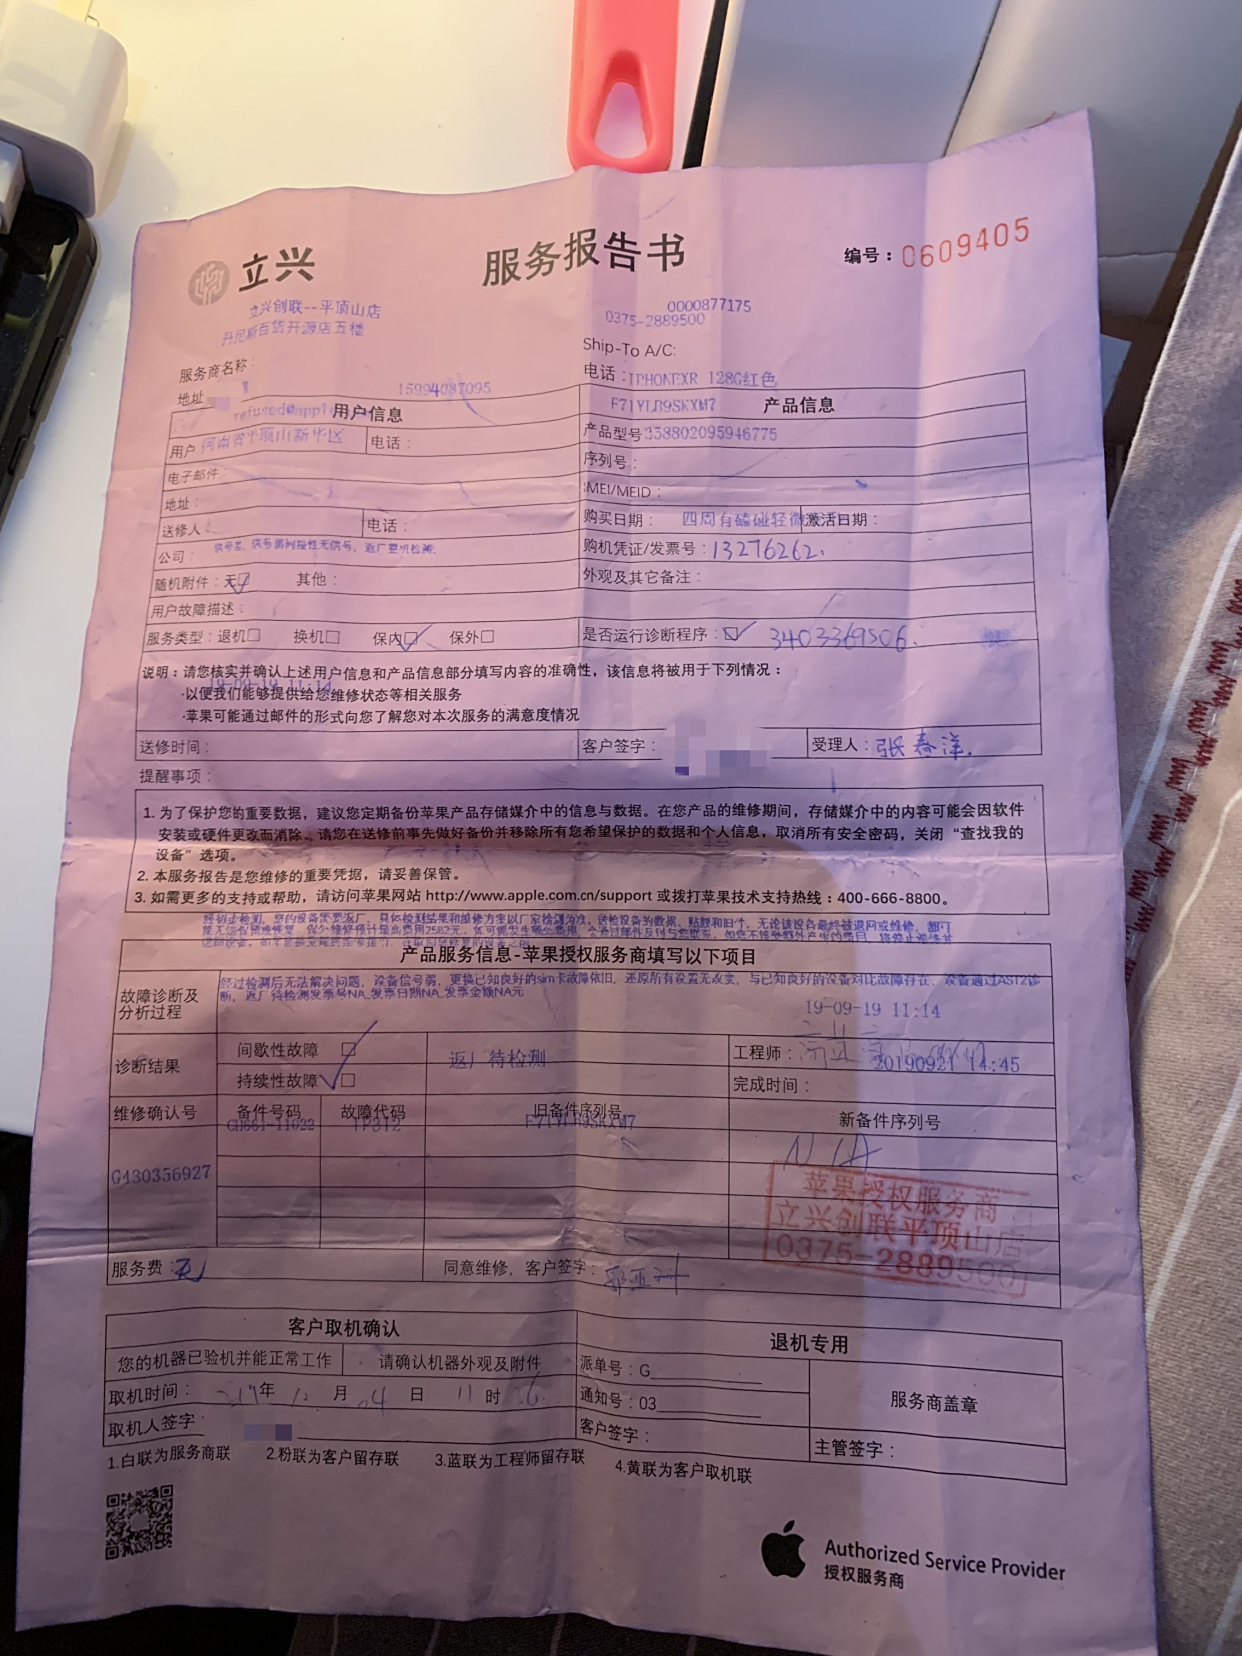 立兴
服务报告书
编号：0609405
立兴创联--平顶山店
丹尼斯百货开源店五楼
0000877175
0375-2889500
服务商名称：
Ship-To A/C:
地址
电话：IPHONEXR 128G红色
15994087095
refused@apple
用户信息
F71YLR9SKXM7
产品信息
用户 河南省平顶山新华区
电话：
产品型号 358802095946775
电子邮件：
序列号：
地址：
IMEI/MEID：
送修人
电话：
购买日期： 四周有磕碰轻微
激活日期：
公司：
信号差，信号弱间接性无信号，返厂整机检测
购机凭证/发票号：13276262.
随机附件：无☑ 其他：
外观及其它备注：
用户故障描述：
服务类型：退机□ 换机□ 保内☑ 保外□
是否运行诊断程序：☑ 3403369506.
说明：请您核实并确认上述用户信息和产品信息部分填写内容的准确性，该信息将被用于下列情况：
19-09-19 11:14
·以便我们能够提供给您维修状态等相关服务
·苹果可能通过邮件的形式向您了解您对本次服务的满意度情况
送修时间：
客户签字：
受理人：张春洋.
提醒事项：
1. 为了保护您的重要数据，建议您定期备份苹果产品存储媒介中的信息与数据。在您产品的维修期间，存储媒介中的内容可能会因软件
安装或硬件更改而消除。请您在送修前事先做好备份并移除所有您希望保护的数据和个人信息，取消所有安全密码，关闭“查找我的
设备”选项。
2. 本服务报告是您维修的重要凭据，请妥善保管。
3. 如需更多的支持或帮助，请访问苹果网站 http://www.apple.com.cn/support 或拨打苹果技术支持热线：400-666-8800。
经初步检测，您的设备需要返厂、具体检测结果和维修方案以厂家检测为准，送检设备的数据、贴膜和旧件，无论该设备最终被退网或维修，都可
能无法保留或恢复，保外维修预计最高费用2582元。
产品服务信息-苹果授权服务商填写以下项目
故障诊断及
分析过程
经过检测后无法解决问题，设备信号弱，更换已知良好的sim卡故障依旧，还原所有设置无改变，与已知良好的设备对比故障存在、设备通过AST2诊
断，返厂待检测发票号NA_发票日期NA_发票金额NA元
19-09-19 11:14
诊断结果
间歇性故障 □
持续性故障 ☑
返厂待检测
工程师：
20190921 14:45
完成时间：
维修确认号
备件号码
故障代码
旧备件序列号
新备件序列号
G430356927
CH661-11022
IP312
F71YLR9SKXM7
N/A
苹果授权服务商
立兴创联平顶山店
0375-2889500
服务费：无
同意维修，客户签字：
客户取机确认
退机专用
您的机器已验机并能正常工作
请确认机器外观及附件
派单号：G
取机时间： 年 月 04 日 11 时
通知号：03
服务商盖章
取机人签字
客户签字：
主管签字：
1.白联为服务商联 2.粉联为客户留存联 3.蓝联为工程师留存联 4.黄联为客户取机联
Authorized Service Provider
授权服务商